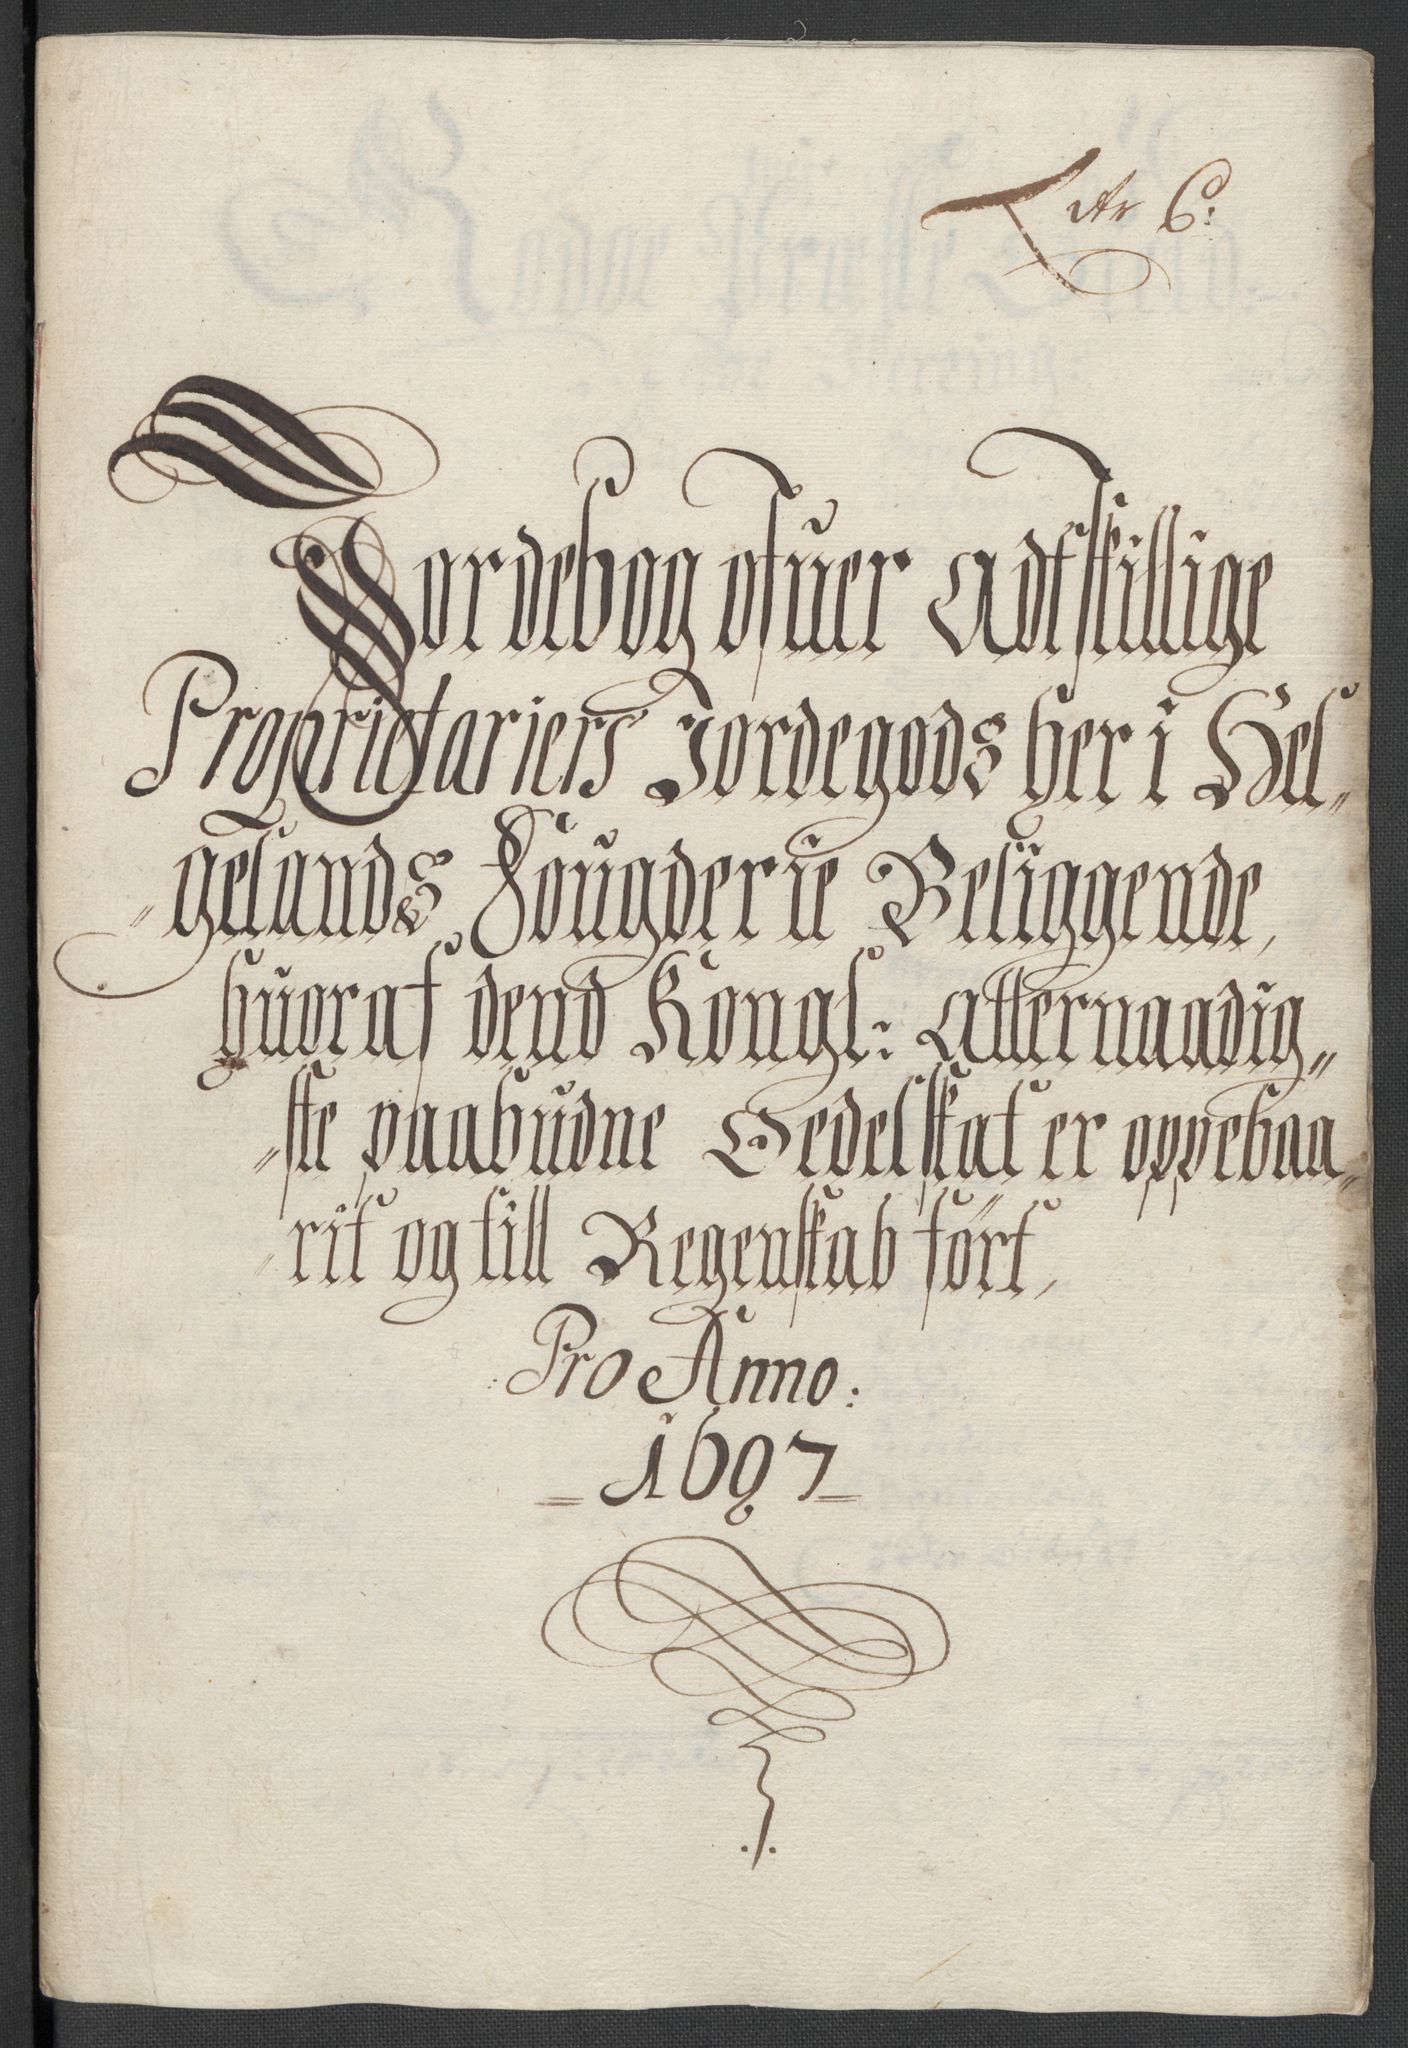 Litr C:
Jordebog ofuer Adtskillige
Proprietariers Jordegods her i Hel„
„gelands Fougderie Beliggende,
huoraf dend Kongl: Allernaadig„
„ste paabudne Oedelskat er oppebaa„
„rit og till Regenskab fört,
Pro Anno:
1697